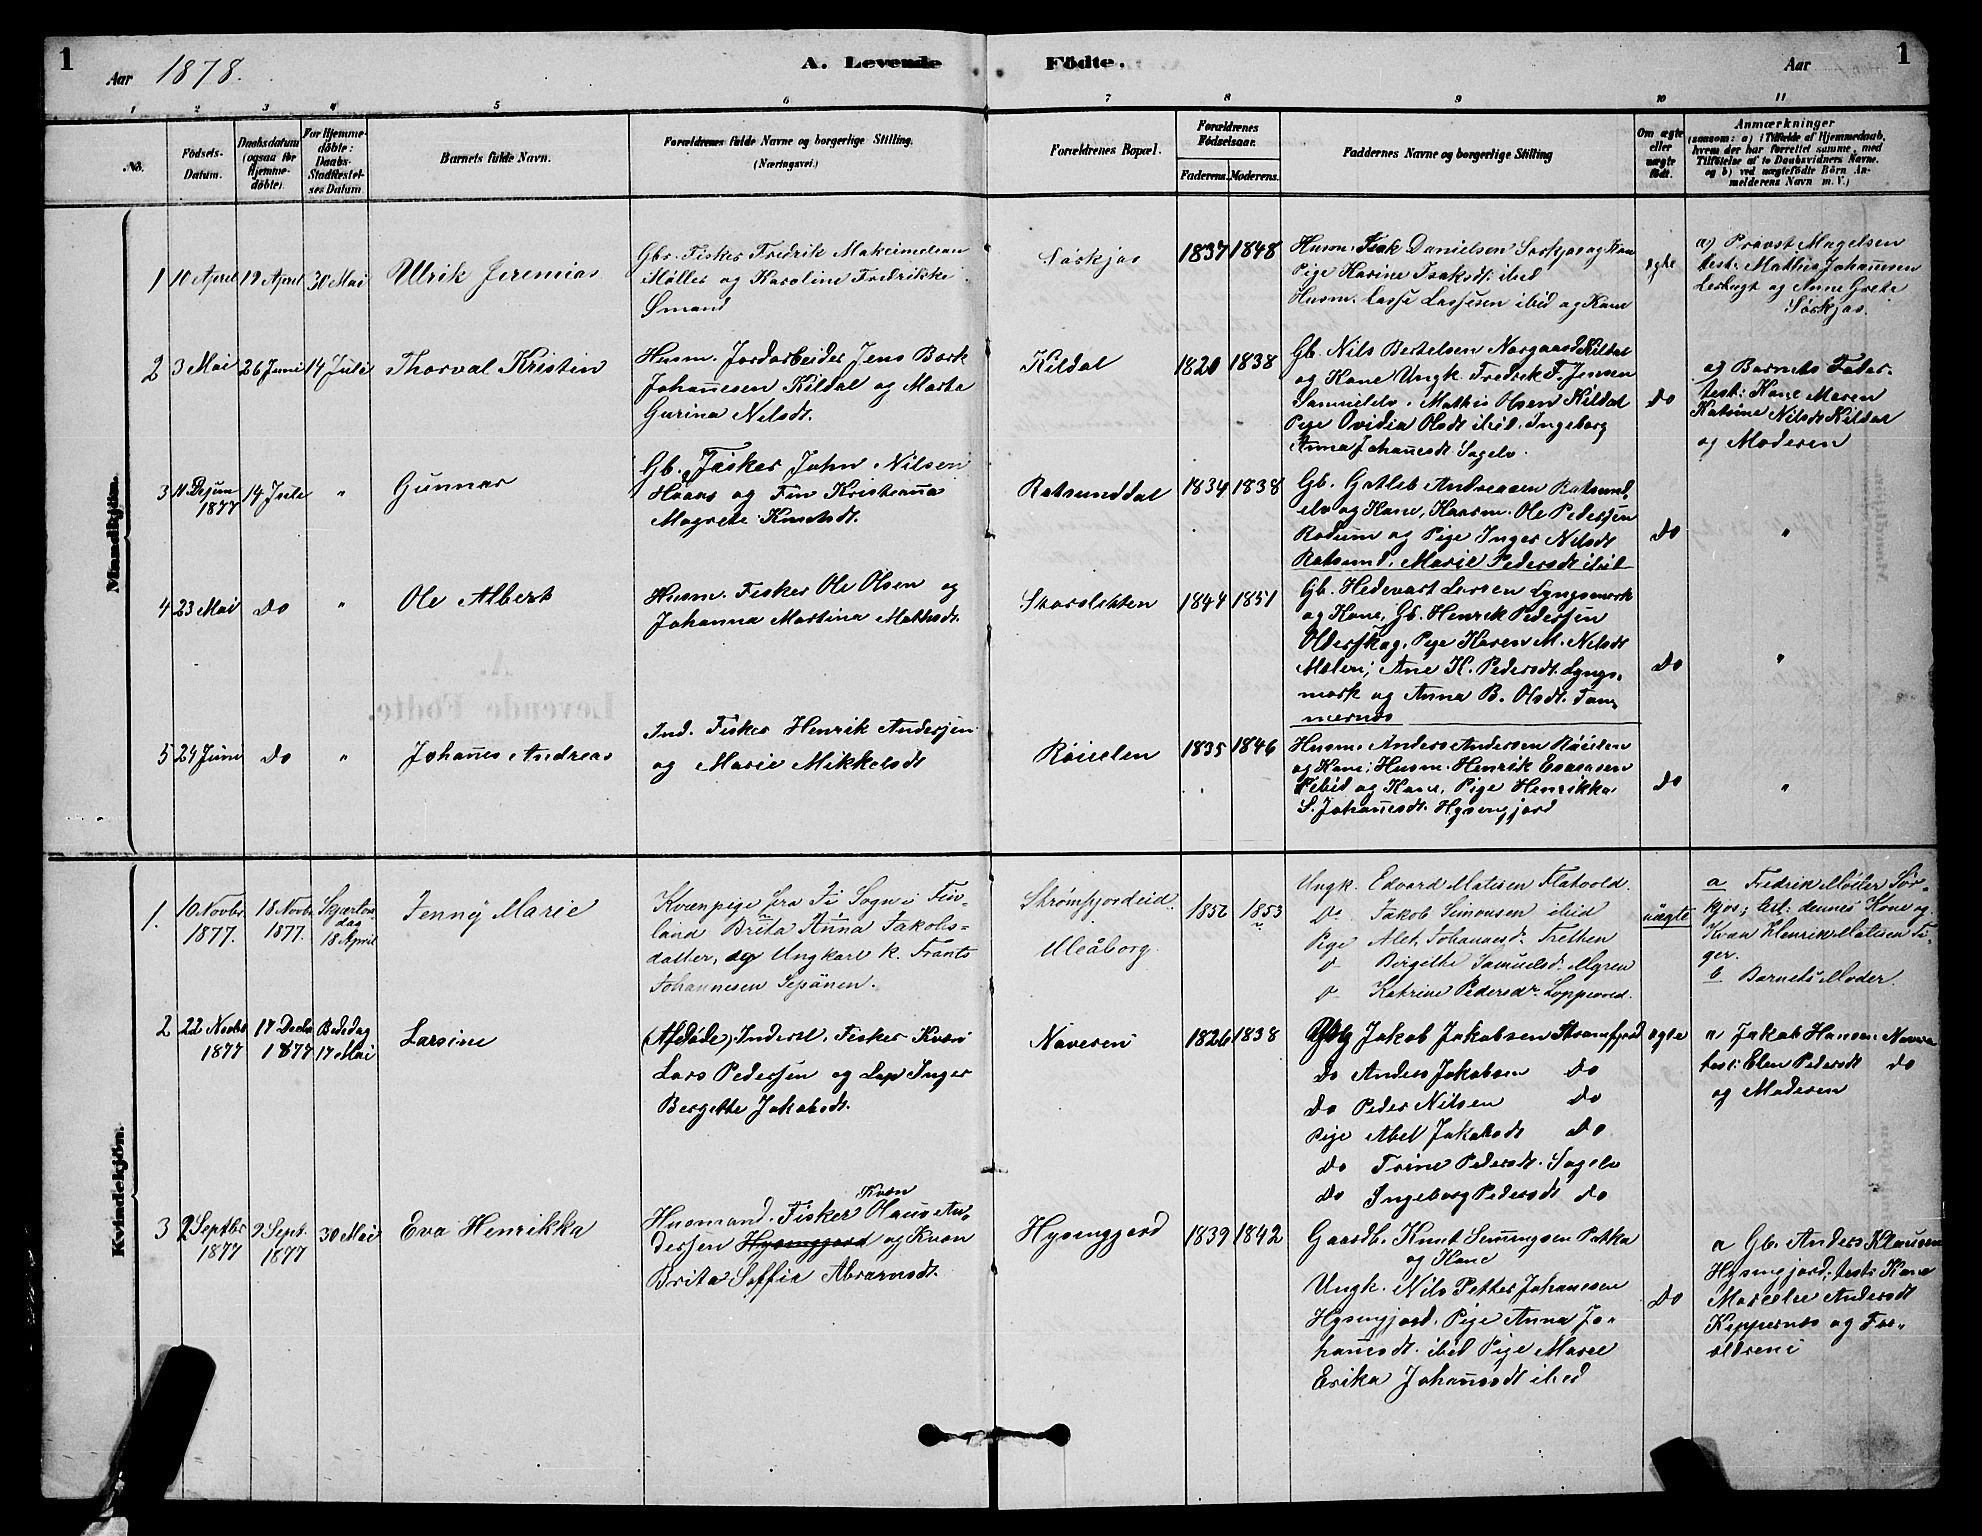 1
Aar 1878.
A. Levende Födte.
Aar
1
1 2 3 4 5 6 7 8 9 10 11
No.
Födsels-Datum.
Daabsdatum (ogsaa för Hjemme-döbte).
For Hjemme-döbte: Daabs-Stadfæstel-ses Datum
Barnets fulde Navn.
Forældrenes fulde Navne og borgerlige Stilling. (Næringsvei.)
Forældrenes Bopæl.
Forældrenes Födselsaar.
Faderens. Moderens.
Faddernes Navne og borgerlige Stilling
Om ægte eller uægte födt.
Anmærkninger
(saasom: a) i Tilfælde af Hjemmedaab, hvem der har forrettet samme, med Tilföielse af to Daabsvidners Navne. og b) ved uægtefödte Börn An-melderens Navn m. V.)
Mandkjön.
1 10 April 19 April 30 Mai
Ulrik Jeremias
Gbr. Fisker Fredrik Maksimelian
Møller og Karoline Fredrikke
Ømand
Sørkjos
1837 1848
Husm. Isak Danielsen Sørkjos og Kone
Pige Karine Isaksdt. ibid
Husm. Lasse Lassesen ibid og Kone
ægte
a) Provst Magelsen
test: Mathis Johannesen
Leibugt og Anne Grete
Sørkjos.
2 3 Mai 26 Juni 14 Juli
Thorval Kristin
Husm. Jordarbeider Jens Bork
Johanesen Kildal og Marta
Gurina Nilsdt.
Kildal
1820 1838
Gb. Nils Bertelsen Norgaard Kildal
og Kone Ungk. Fredrik F. Jensen
Samuelelv. Mathis Olsen Kildal
Pige Ovidia Olsdt ibid. Ingeborg
Anna Johanesdt. Sagelv.
Do
a) Barnets Fader
test: Kone Maren
Katrine Nilsdt Kildal
og Moderen
3 11 Dejun 1877 14 Juli "
Gunnar
Gb. Fisker John Nilsen
Hvaas og Fin Kristianna
Magrete Knudsdt.
Rotsunddal
1834 1838
Gb. Gotleb Andreasen Rotsund-
elv og Kone, Husm. Ole Pedersen
Rodum og Pige Inger Nilsdt
Rotsund, Marie Pedersdt ibid
Do
"
4 23 Mai Do "
Ole Albert
Husm. Fisker Ole Olsen og
Johanna Martina Mathisdt.
Storsletten
1844 1851
Gb. Hedevart Larsen Lyngsmark
og Kone, Gb. Henrik Pedersen
Olderskog, Pige Karen M. Nilsdt
Molen; Ane K. Pedersdt. Lyngs-
mark og Anna B. Olsdt. Tom-
mernes
Do
"
5 24 Juni Do "
Johanes Andreas
Ind. Fisker Henrik Andersen
og Marie Mikkelsdt
Røieelen
1835 1846
Husm. Anders Andersen Røieelen
og Kone; Husm. Henrik Esaiasen
ibid og Kone, Pige Henrikka
S. Johanesdt. Hysingjord
Do
"
Kvindekjön.
1. 10 Novbr 1877. 18 Novbr 1877. Skjærtorsdag 18 April
Jenny Marie
Kvænpige fra Ii Sogn i Fin-
land Brita Anna Jakobs-
datter, og Ungkarl K. Frants
Johannesen Sepänen.
Strømfjordeid.
Uleåborg.
1852 1853
Ungk. Edvard Matisen Flatvold.
Do Jakob Simonsen ibid
Pige Alet. Johannesd. Tretten
Do Birgithe Samuelsd. Mgren
Do Katrine Pedersdr. Loppevod.
uægte
a Fredrik Møller Sør-
kjos; test: dennes Kone og
Kvæn Henrik Matisen Ti-
ger.
b Barnets Moder.
2 22 Novbr 1877 17 Decbr 1877 Bededag 17 Mai
Larsine
(Afdøde) Inderst. Fisker Kvæn
Lars Pedersen og Lap Inger
Bergette Jakobsdt.
Naveren
1826 1838
Jakob Jakobsen Strømfjord
Do Anders Jakobsen Do
Do Peder Nilsen Do
Pige Abel Jakobsdt Do
Do Trine Pedersdt. Sagelv
Do Ingeborg Pedersdt Do
ægte
a Jakob Hansen Naveren
test: Elen Pedersdt Do
og Moderen
3 2 Septbr 1877 9 Sept. 1877 30 Mai
Eva Henrikka
Husmand. Fisker Kvæn Olaus An-
dersen Hysingjord og Kvæn
Brita Soffie Abramsdt.
Hysingjord
1839 1842
Gaardb. Knut Semmingsen Pakka
og Kone
Ungk. Nils Petter Johanesen
Hysingjord, Pige Anna Jo-
hanesdt. ibid Pige Marie
Erika Johanesdt ibid
Do
a Gb. Anders Klausen
Hysingjord; test: Kone
Marcelie Andersdt
Keppernes og For-
ældrene